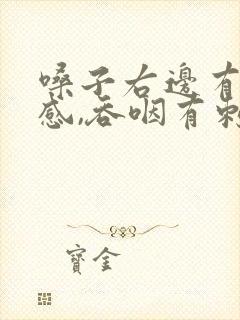 嗓子右邊有
感,吞咽有刺
寶金